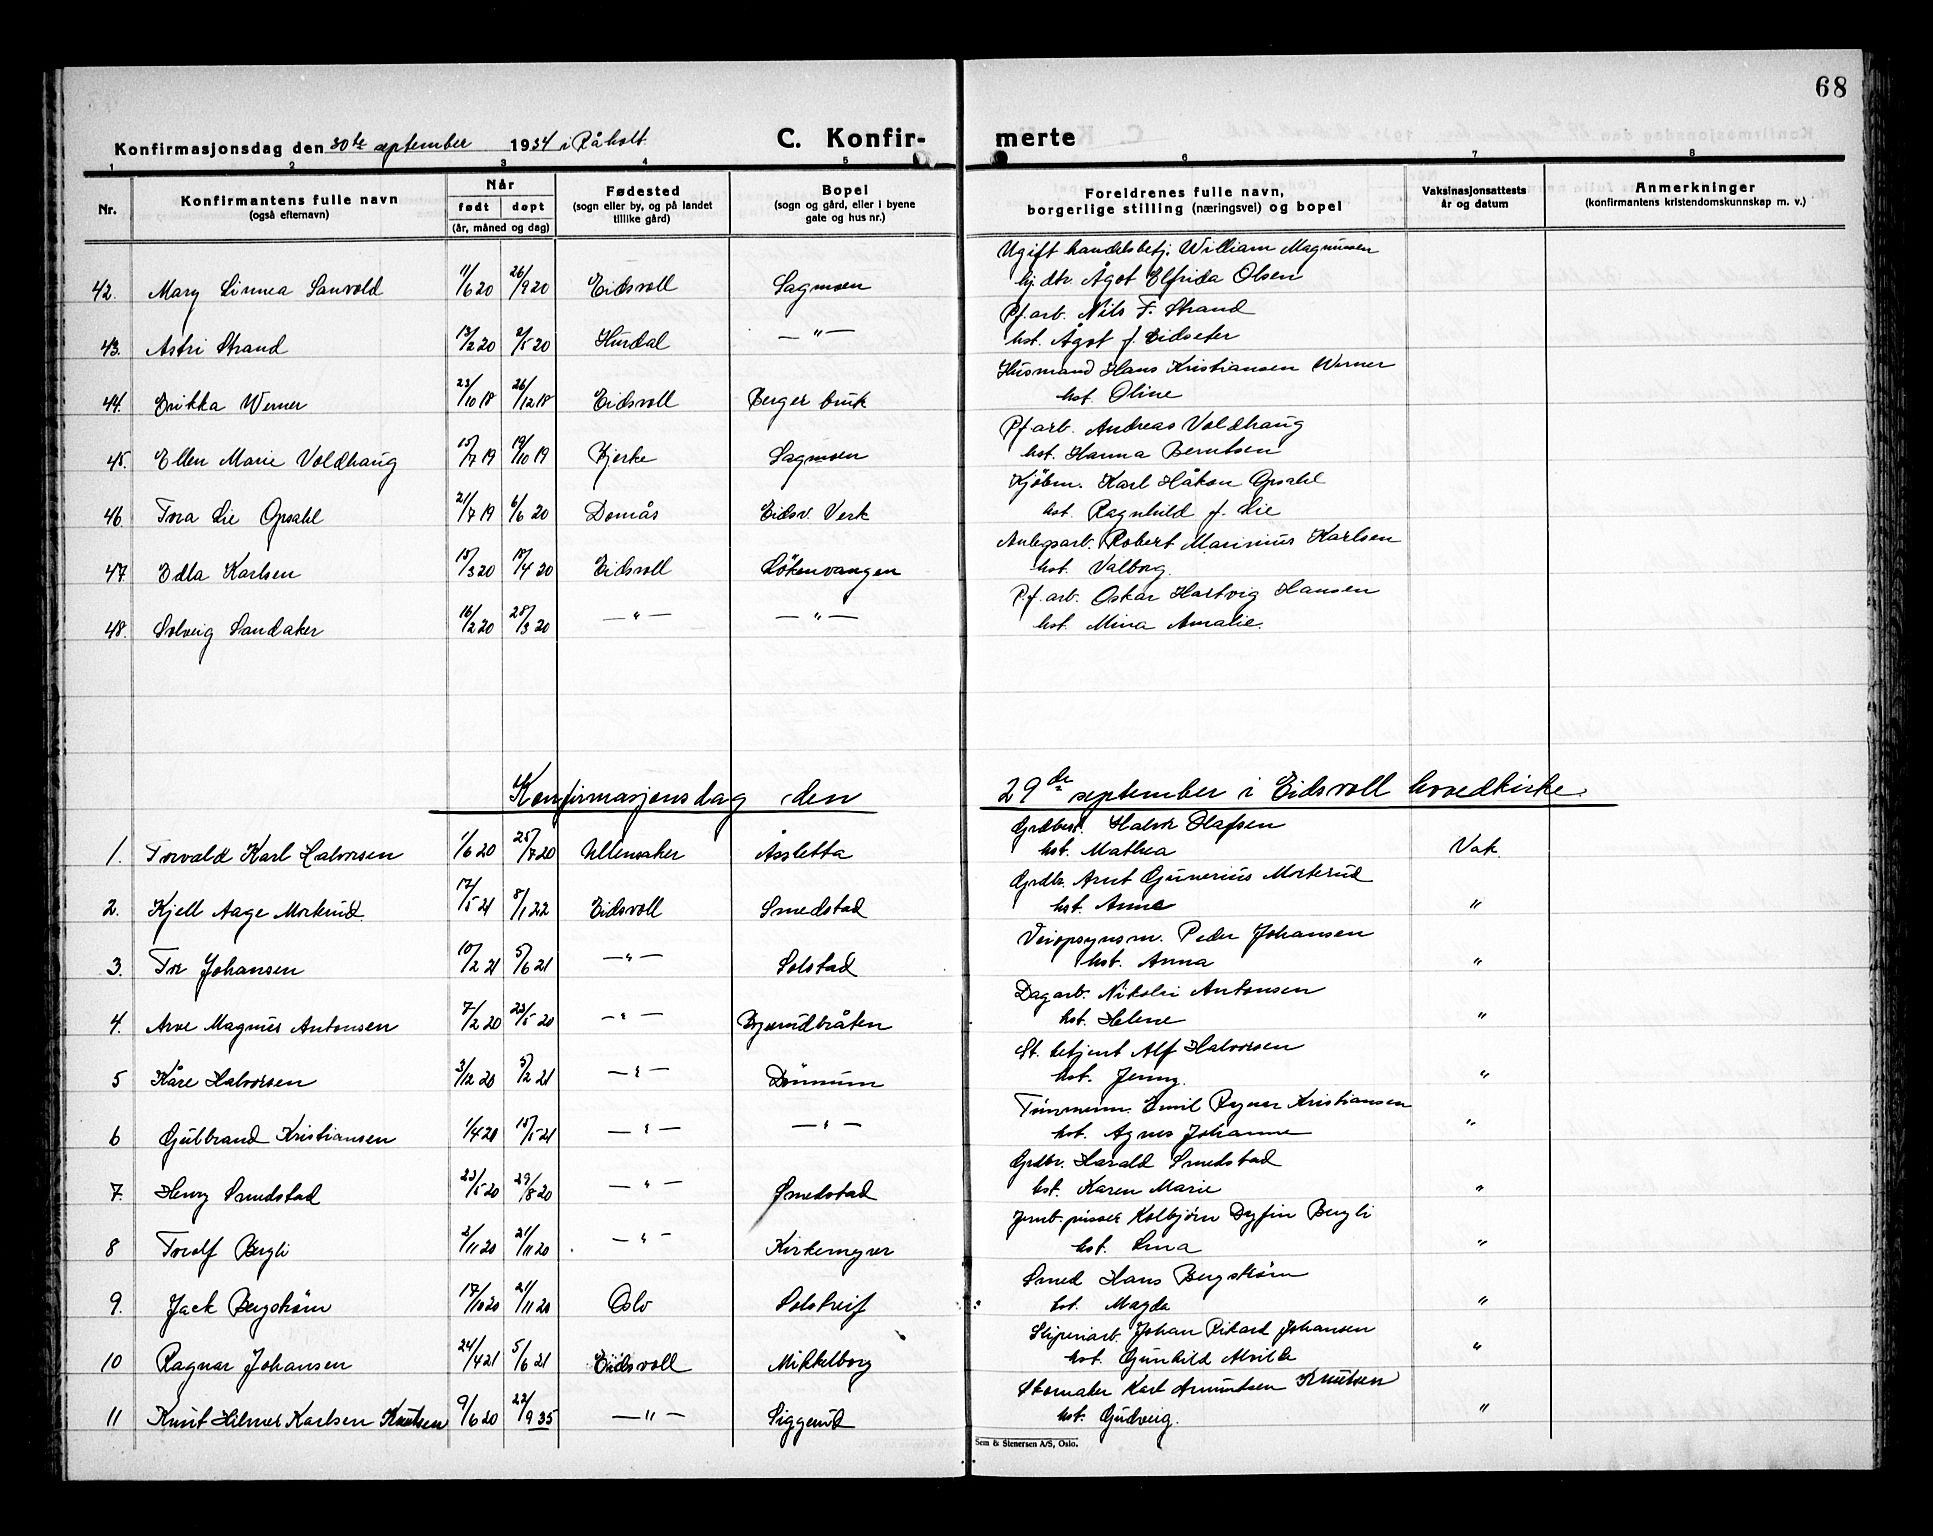 68
Konfirmasjonsdag den 30te september 1934 i Råholt. C. Konfir- merte
1 2 3 4 5 6 7 8
Nr. Konfirmantens fulle navn (også efternavn) Når født døpt (år, måned og dag) Fødested (sogn eller by, og på landet tillike gård) Bopel (sogn og gård, eller i byene gate og hus nr.) Foreldrenes fulle navn, borgerlige stilling (næringsvei) og bopel Vaksinasjonsattests år og datum Anmerkninger (konfirmantens kristendomskunnskap m. v.)
Ugift handelsbetj. William Magnussen
42. Mary Linnea Sanvold 11/6 20 26/9 20 Eidsvoll Sagmoen hj. dtr. Ågot Elfrida Olsen
Pf. arb. Nils F. Strand
43. Astri Strand 13/2 20 2/5 20 Hurdal — " — hst. Ågot f. Eidseter
Husmand Hans Kristiansen Werner
44. Erikka Werner 23/10 18 26/12 18 Eidsvoll Berger bruk hst. Oline
Pf arb. Andreas Voldhaug
45. Ellen Marie Voldhaug 15/7 19 19/10 19 Bjerke Sagmoen hst. Hanna Berntsen
Kjöbm. Karl Håkon Opsahl
46 Tora Lie Opsahl 21/7 19 6/6 20 Domås Eidsv. Verk hst. Ragnhild f. Lie
Anlegsarb. Robert Marinius Karlsen
47. Edla Karlsen 15/3 20 18/4 20 Eidsvoll Lökenvangen hst. Valborg.
P.f. arb. Oskar Hartvig Hansen
48. Solveig Sandaker 16/2 20 28/3 20 — " — — " — hst. Mina Amalie.
Konfirmasjonsdag den 29de september i Eidsvoll hovedkirke.
Grdbest. Halvor Olafsen
1. Torvald Karl Halvorsen 1/6 20 25/7 20 Ullensaker Åssletta hst. Mathea Vak.
Grdbr. Arnt Gunerius Morterud
2. Kjell Aage Morterud 17/5 21 8/1 22 Eidsvoll Smedstad hst. Anna "
Veiopsynsm. Peder Johansen
3. Tor Johansen 10/2 21 5/6 21 — " — Solstad hst. Anna "
Dagarb. Nikolai Antonsen
4. Arve Magnus Antonsen 7/2 20 23/5 20 — " — Bjerridbråten hst. Helene "
St. betjent Alf Halvorsen
5 Kåre Halvorsen 3/12 20 5/2 21 — " — Dönnum hst. Jenny. "
Tömmerm. Emil Ragnar Kristiansen
6 Gulbrand Kristiansen 1/4 20 15/5 21 — " — — " — hst. Agnes Johanne "
Grdbr. Harald Smedstad
7. Henry Smedstad 23/5 20 29/8 20 — " — Smedstad hst. Karen Marie "
Jernb. pusser Kolbjörn Dyfin Bergli
8 Torolf Bergli 2/11 20 21/11 20 — " — Kirkemyrer hst. Erna "
Smed Hans Bergström
9. Jack Bergström 17/10 20 21/11 20 Oslo Solstreif hst. Magda "
Sliperiarb. Johan Rikard Johansen
10 Ragnar Johansen 24/4 21 5/6 21 Eidsvoll Mikkelborg hst. Gunhild Alvilde "
Skomaker Karl Amundsen Knutsen
11 Knut Hilmer Karlsen Knutsen 9/6 20 22/9 35 — " — Siggerud hst. Gudveig. "
Sem & Stenersen A/S, Oslo.